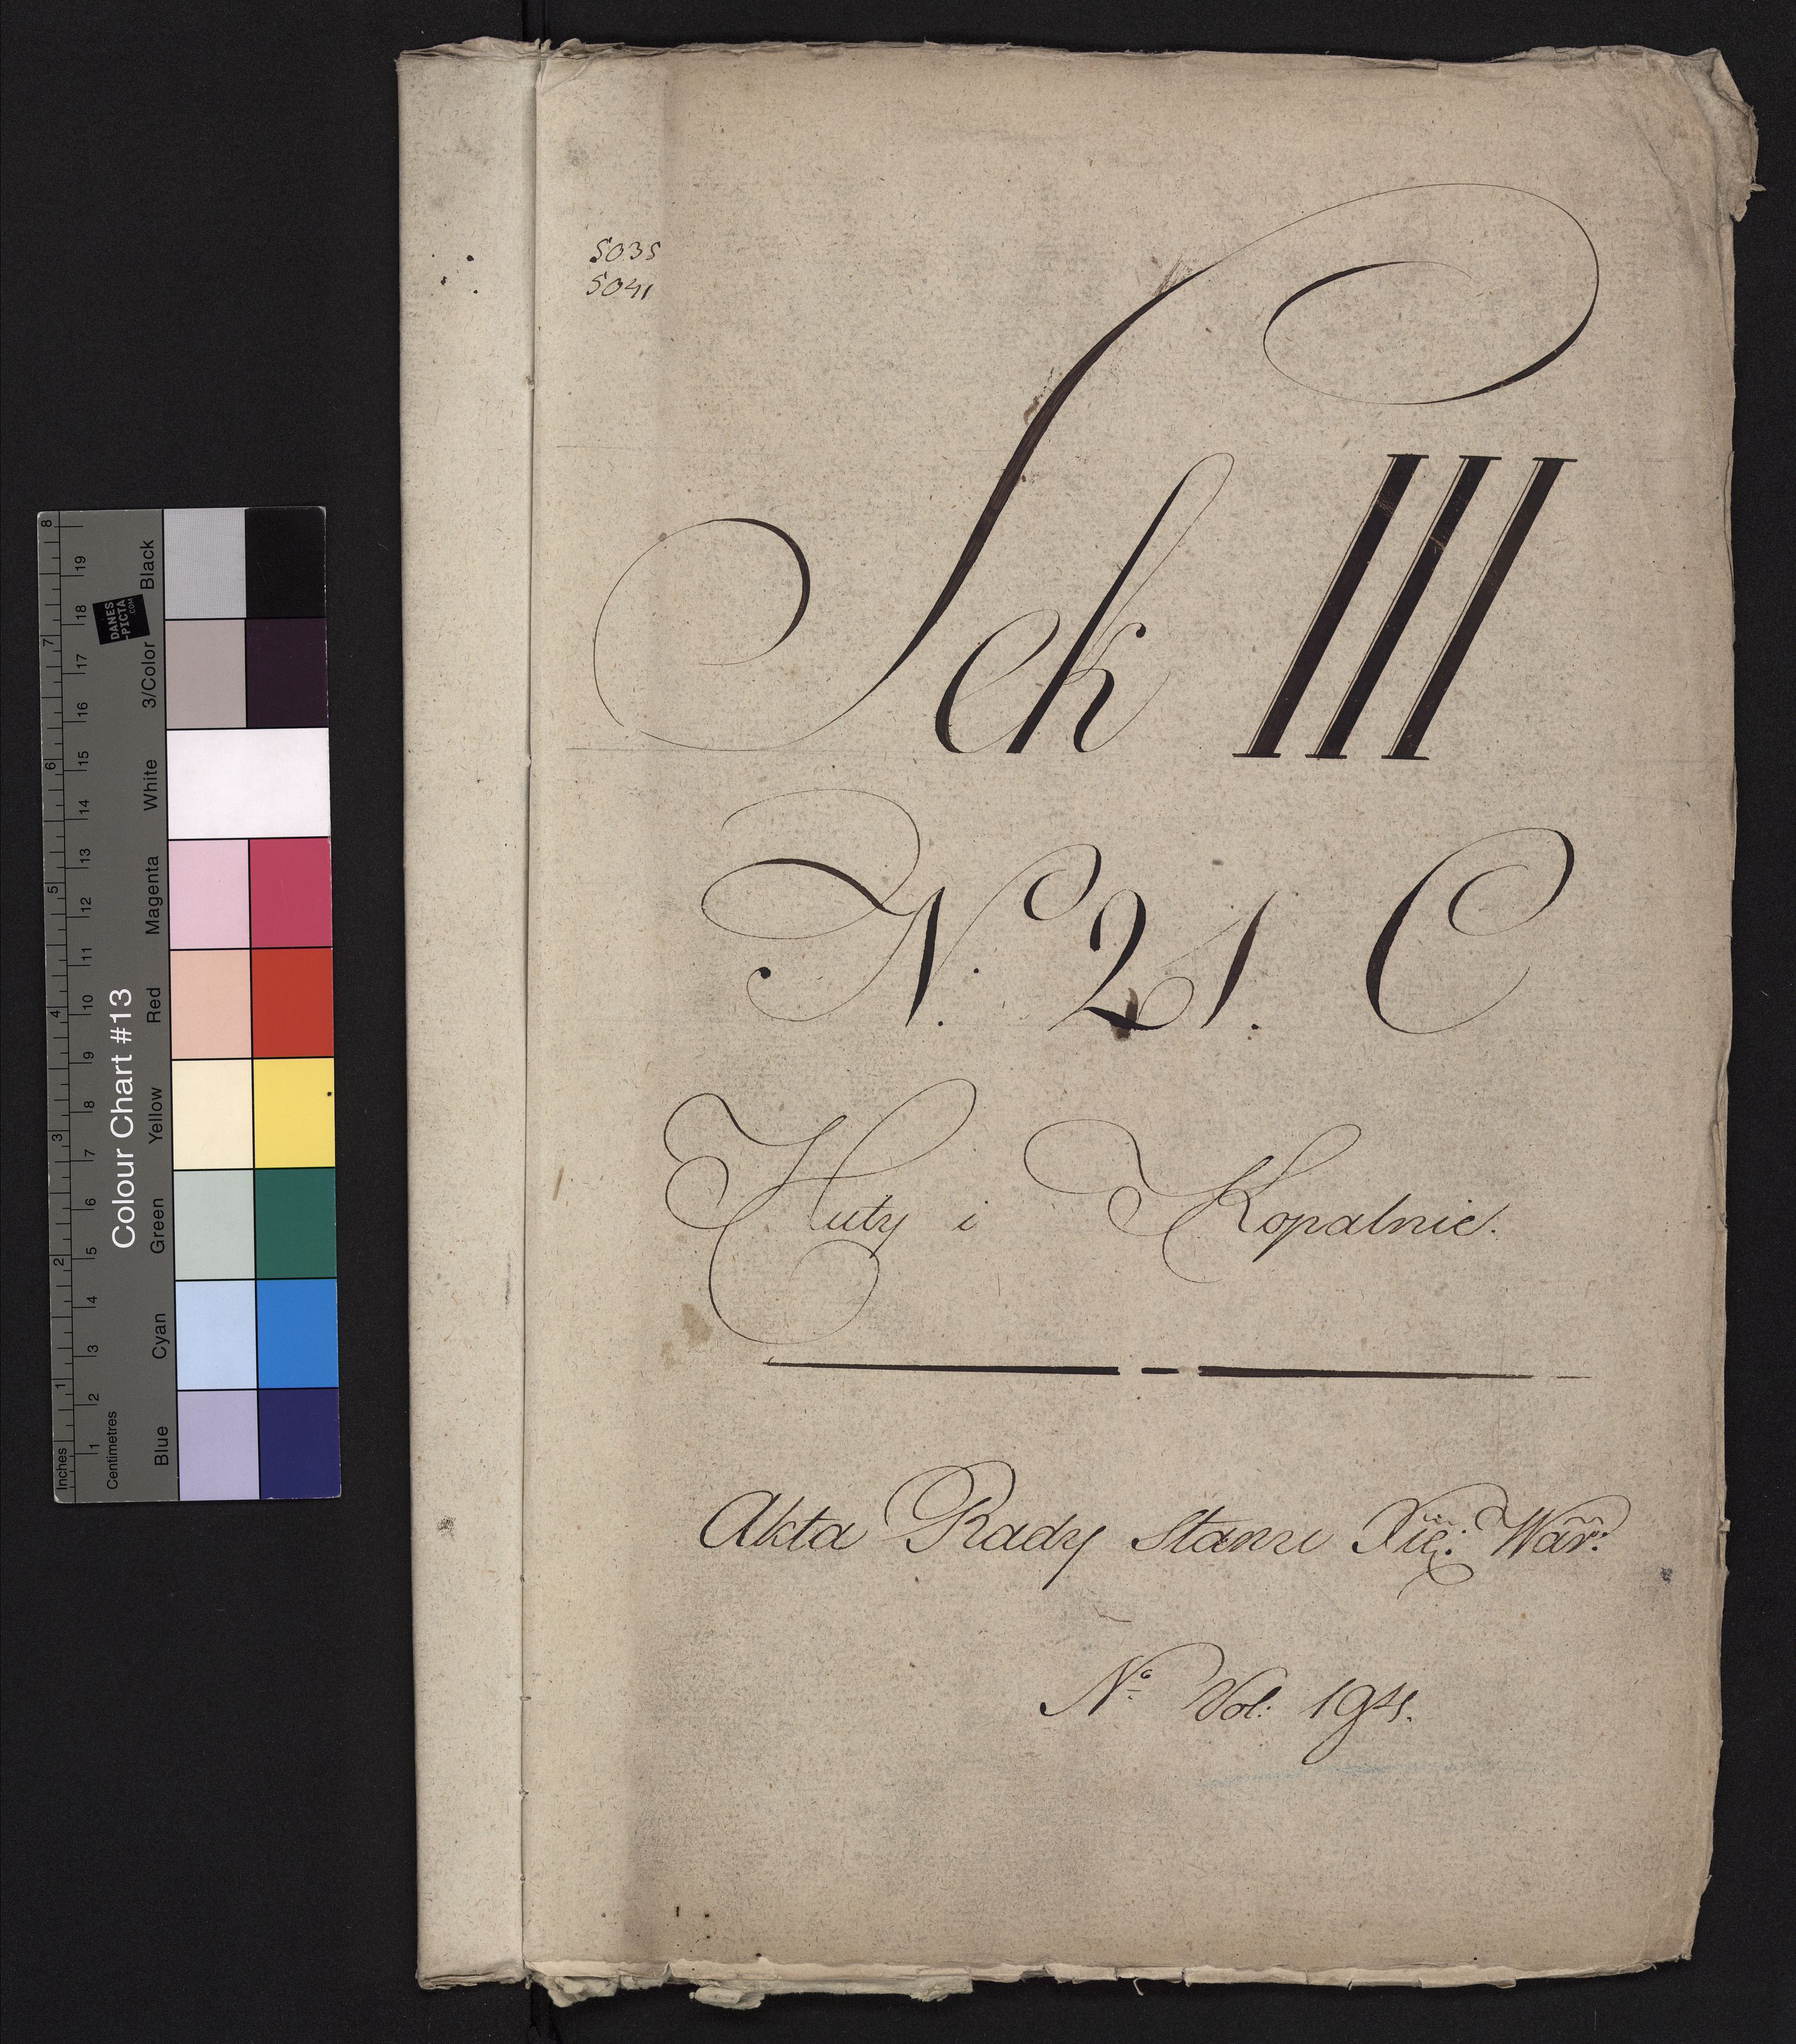 5035
5041
Sek III
No. 21. C
Huty i Kopalnie.
Akta Rady Stanu Xię: War:
No Vol: 194.
Colour Chart #13
Blue Cyan Green Yellow Red Magenta White 3/Color Black
Inches 1 2 3 4 5 6 7 8
Centimetres 1 2 3 4 5 6 7 8 9 10 11 12 13 14 15 16 17 18 19
DANES
-PICTA
.COM